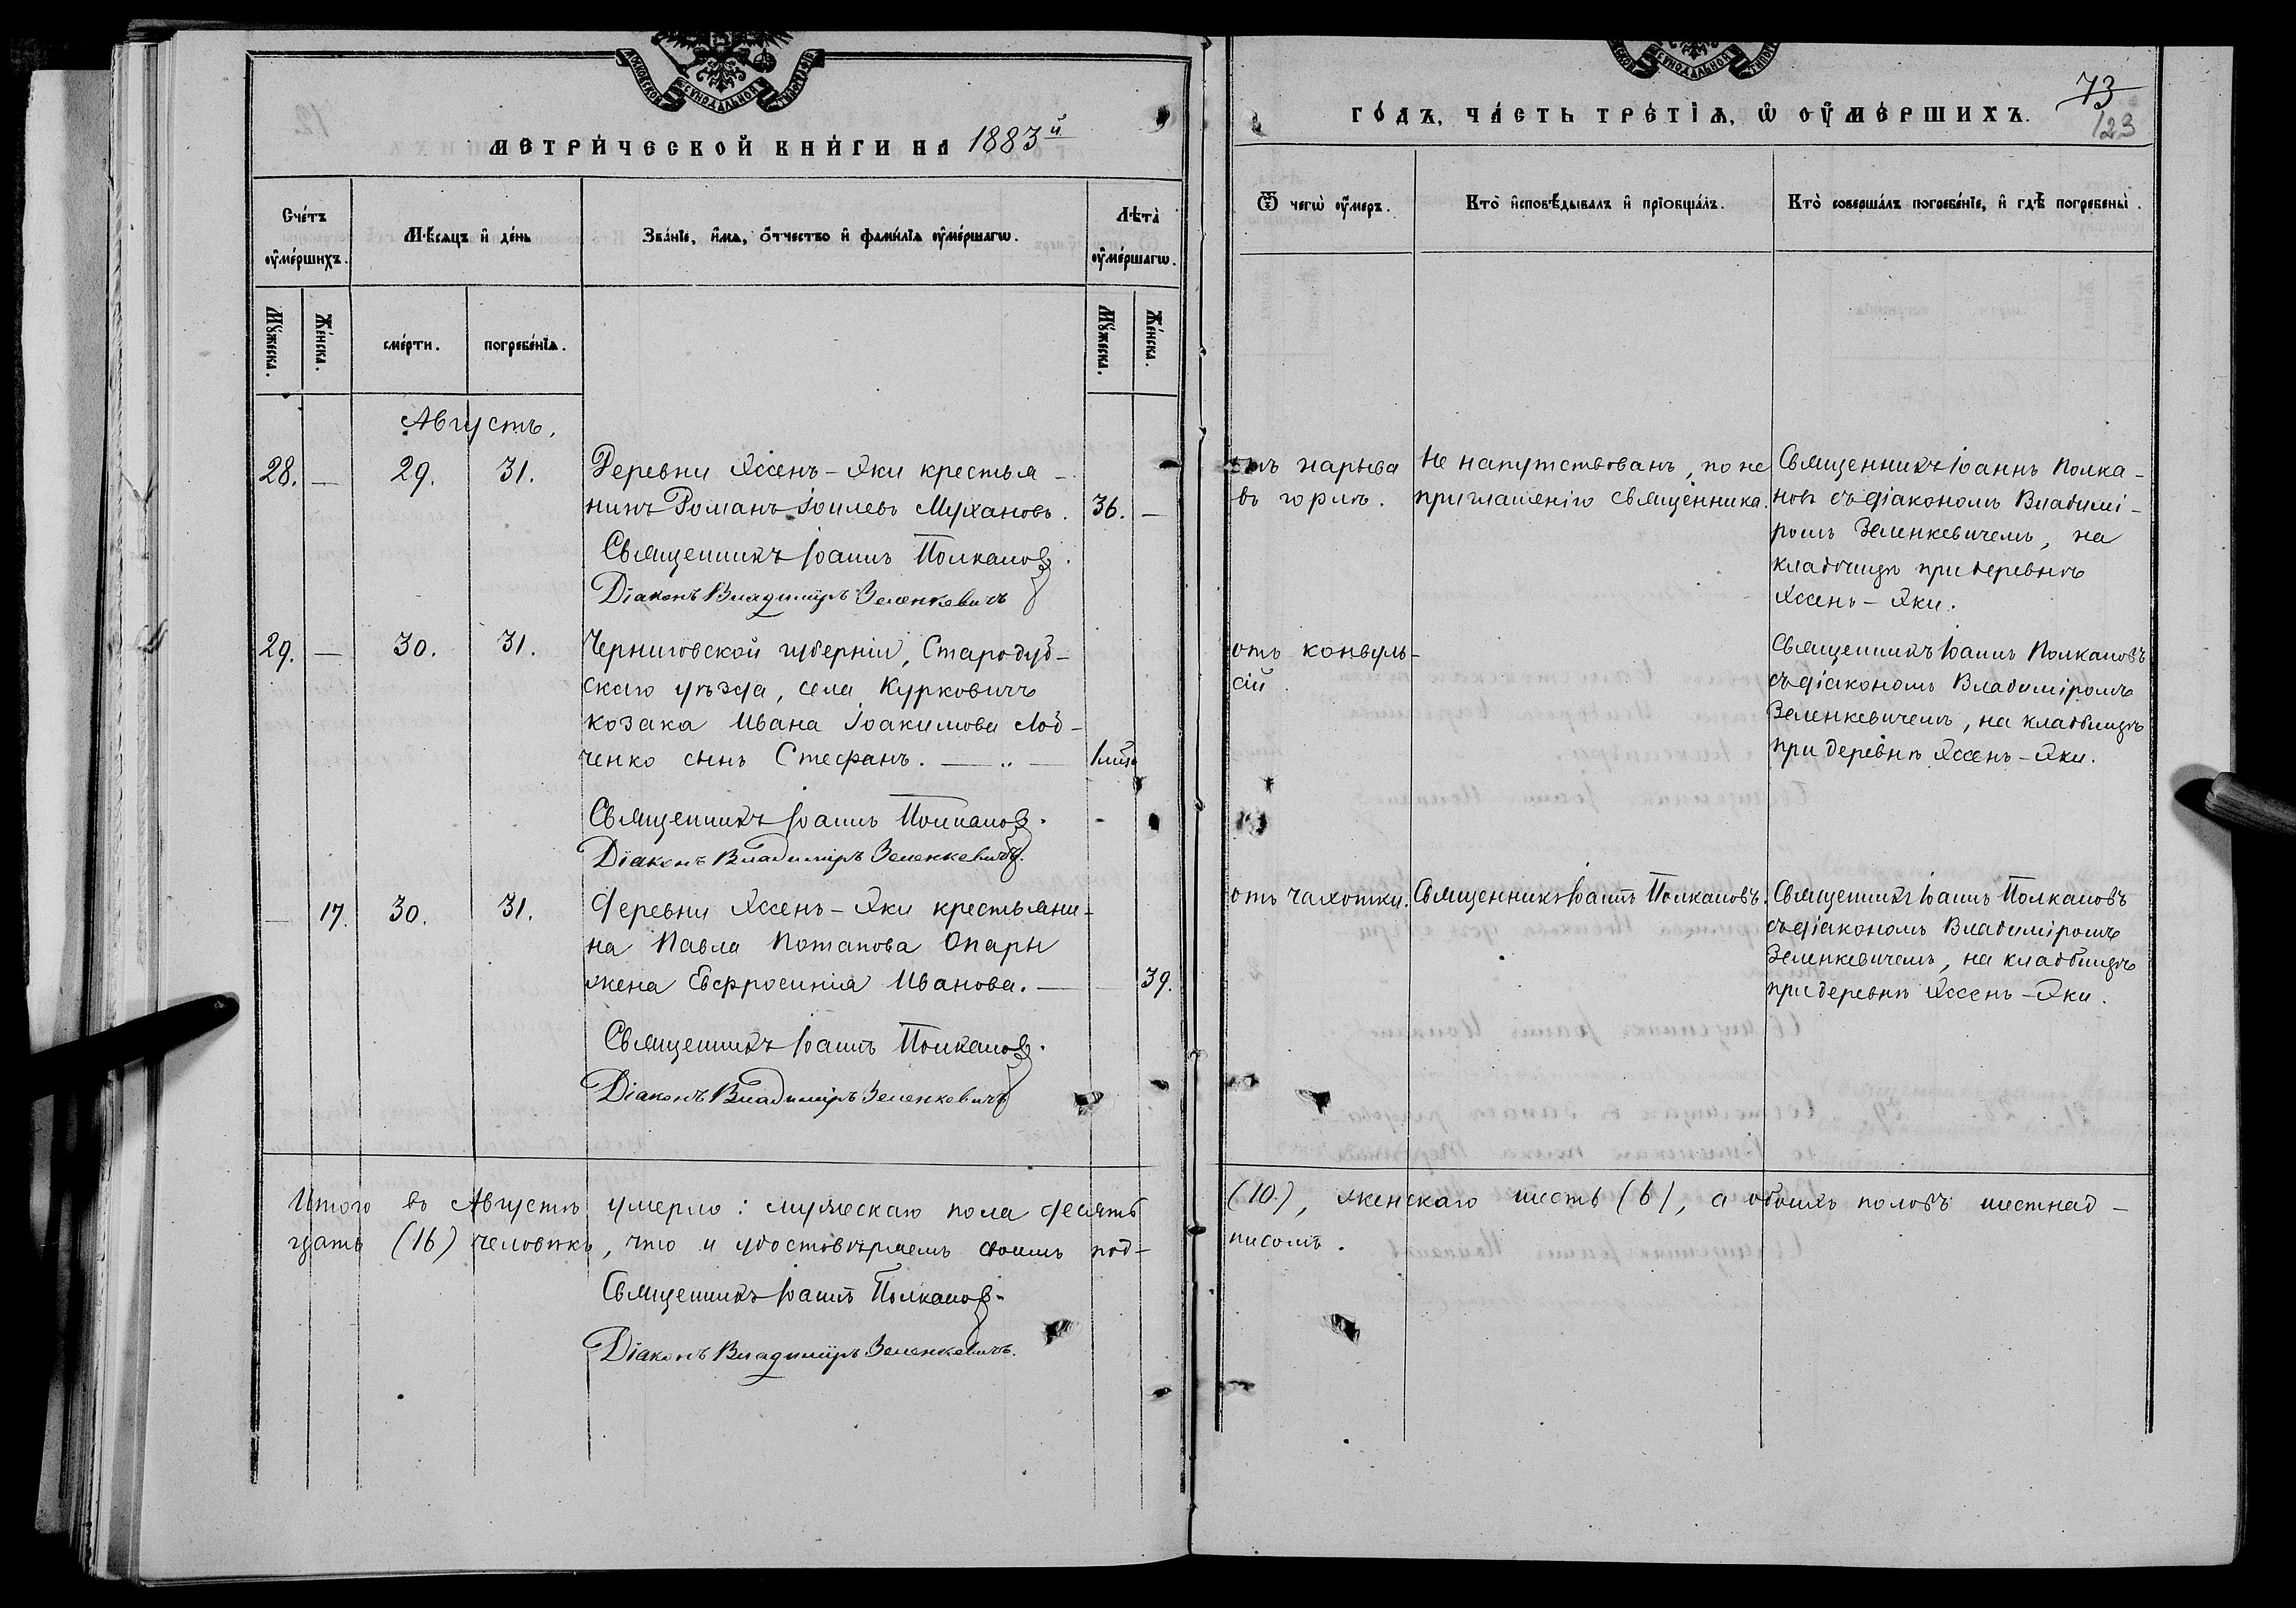 МЕТРИ́ЧЕСКОЙ КНИ́ГИ НА 1883й
ГО́ДЪ, ЧА́СТЬ ТРЕ́ТІѦ, Ѡ ОУ҆МЕ́РШИХЪ.
73
123
Сче́тъ оу҆ме́ршихъ.
Мѣ́сяцъ и҆ де́нь
Зва́нїе, и҆́мѧ, ѻ҆́тчество и҆ фами́лїѧ оу҆ме́ршагѡ.
Лѣта̀ оу҆ме́ршагѡ.
Ѿ чегѡ̀ оу҆́меръ.
Кто̀ и҆сповѣ́дывалъ и҆ прїобща́лъ.
Кто̀ соверша́лъ погребе́нїе, и҆ гдѣ̀ погребены̀.
Мꙋ́жеска.
Же́нска.
сме́рти.
погребе́нїѧ.
Мꙋ́жеска.
Же́нска.
Августъ.
28. — 29. 31.
Деревни Яссенъ-Яки крестья-
нинъ Романъ Іоилевъ Мухановъ. 36. —
Священникъ Іоаннъ Полкановъ.
Діаконъ Владиміръ Зеленкевичъ
отъ нарыва
въ горлѣ.
Не напутствованъ, по не
приглашенію священника.
Священникъ Іоаннъ Полка-
новъ съ діакономъ Владимі-
ромъ Зеленкевичемъ, на
кладбищѣ при деревнѣ
Яссенъ-Яки.
29. — 30. 31.
Черниговской губерніи, Стародуб-
скаго уѣзда, села Курковичъ
козака Ивана Іоакимова Лоб-
ченко сынъ Стефанъ. — „ —
Священникъ Іоаннъ Полкановъ.
Діаконъ Владиміръ Зеленкевичъ.
отъ конвуль-
сій.
Священникъ Іоаннъ Полкановъ
съ діакономъ Владиміромъ
Зеленкевичемъ, на кладбищѣ
при деревнѣ Яссенъ-Яки.
— 17. 30. 31.
Деревни Яссенъ-Яки крестьяни-
на Павла Потапова Опары
жена Евфросинія Иванова. — — 39.
Священникъ Іоаннъ Полкановъ.
Діаконъ Владиміръ Зеленкевичъ
отъ чахотки.
Священникъ Іоаннъ Полкановъ.
Священникъ Іоаннъ Полкановъ
съ діакономъ Владиміромъ
Зеленкевичемъ, на кладбищѣ
при деревнѣ Яссенъ-Яки.
Итого въ Августѣ умерло: мужескаго пола десять (10), женскаго шесть (6), а обоихъ половъ шестнад-
цать (16) человѣкъ, что и удостовѣряемъ своимъ под- писомъ.
Священникъ Іоаннъ Полкановъ.
Діаконъ Владиміръ Зеленкевичъ.